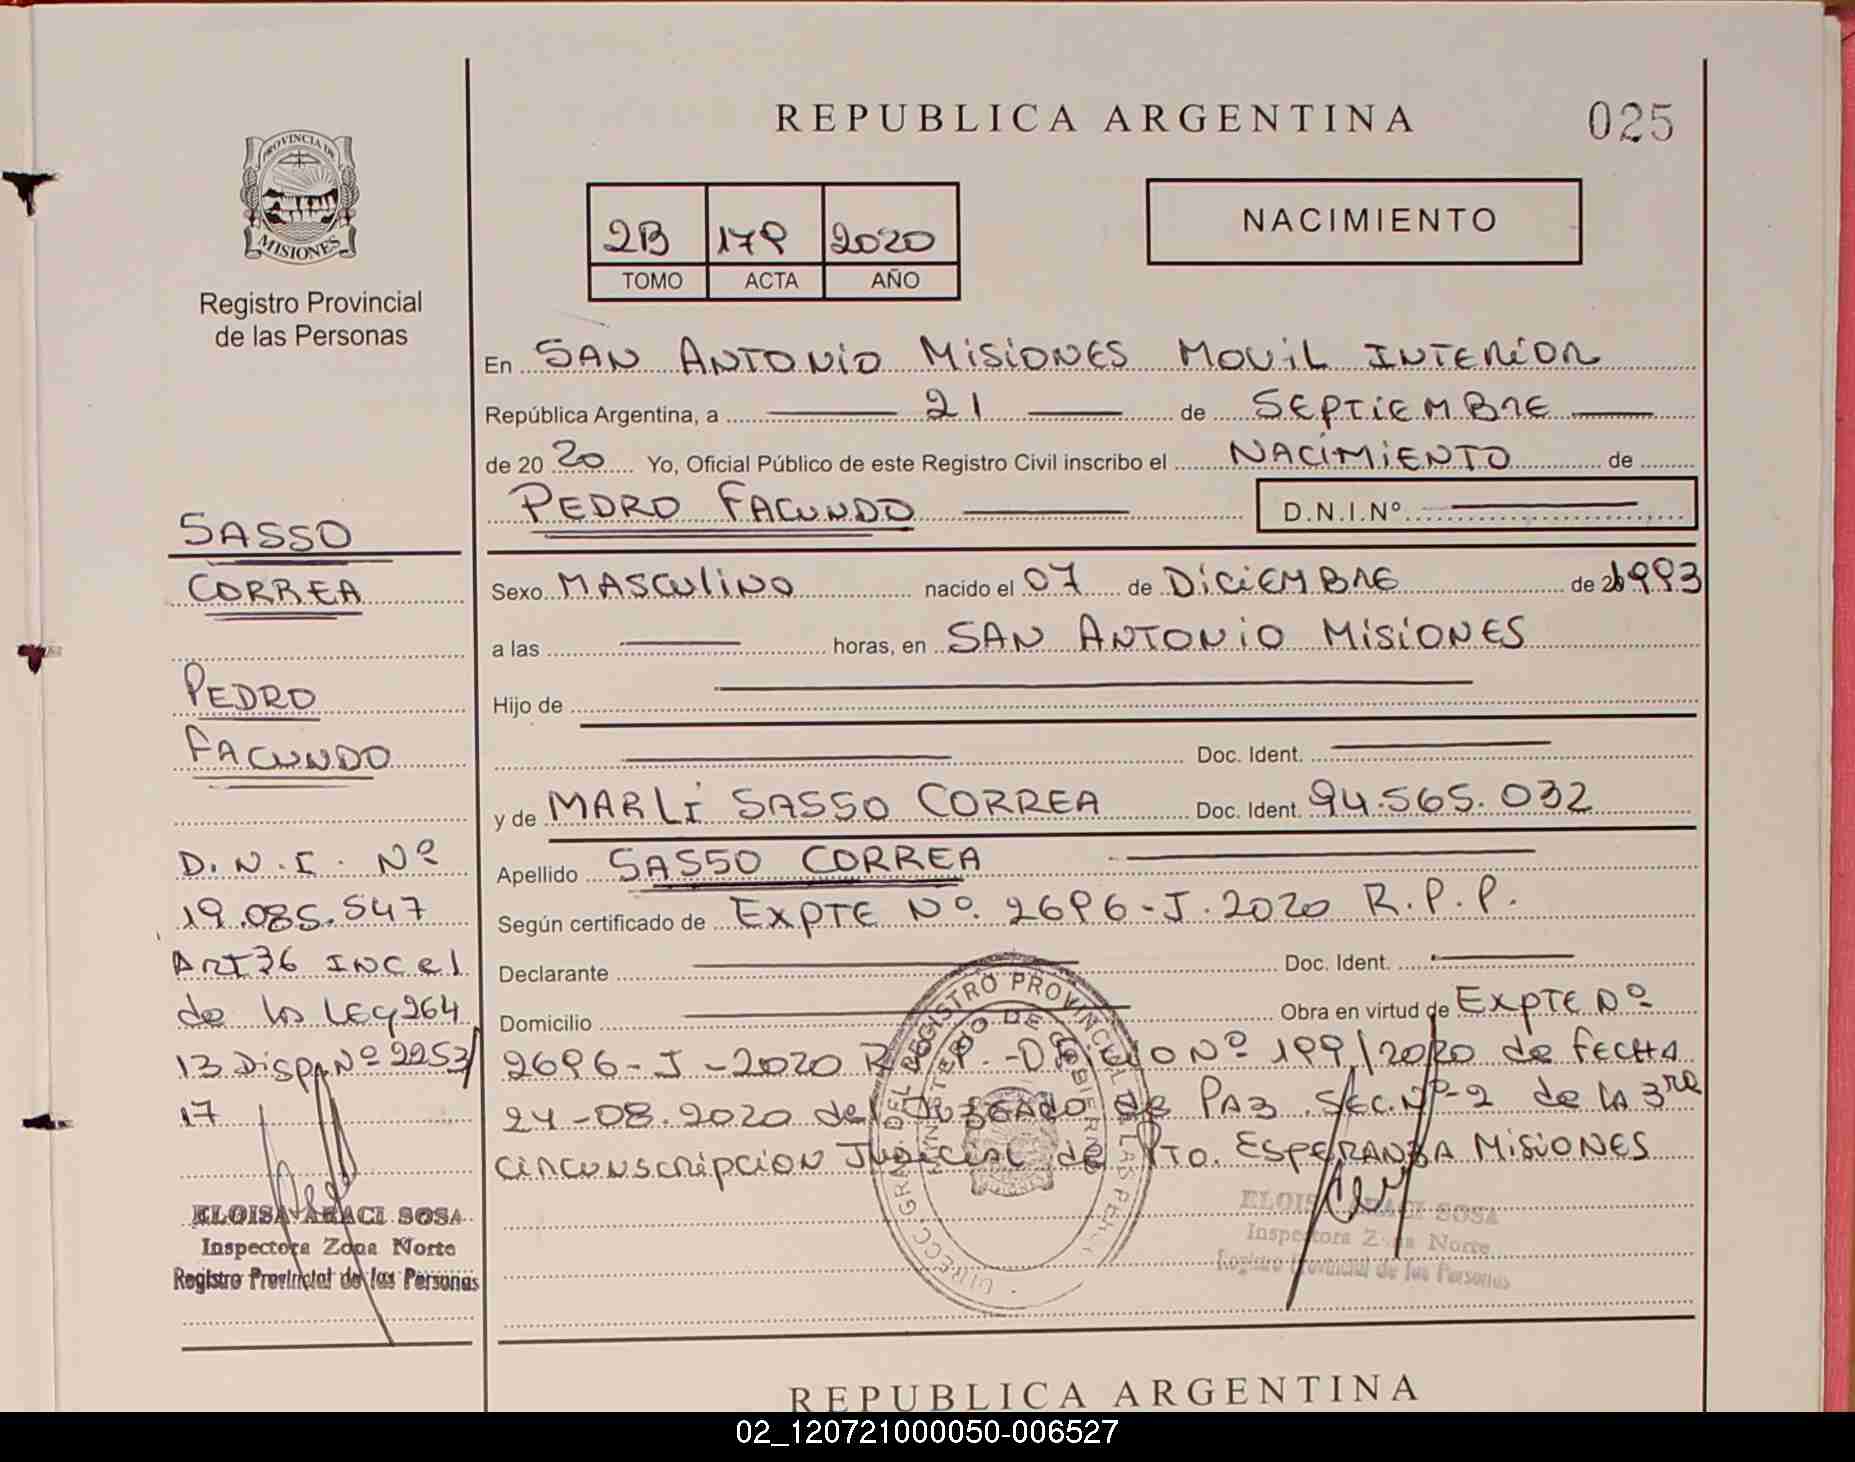 REPUBLICA ARGENTINA
025
PROVINCIA DE
MISIONES
Registro Provincial
de las Personas
2B 179 2020
TOMO ACTA AÑO
NACIMIENTO
En SAN ANTONIO MISIONES MOVIL INTERIOR
República Argentina, a 21 de SEPTIEMBRE
de 20 20 Yo, Oficial Público de este Registro Civil inscribo el NACIMIENTO de
PEDRO FACUNDO D.N.I.Nº
Sexo MASCULINO nacido el 07 de DICIEMBRE de 1993
a las horas, en SAN ANTONIO MISIONES
Hijo de
Doc. Ident.
y de MARLI SASSO CORREA Doc. Ident. 94.565.032
Apellido SASSO CORREA
Según certificado de EXPTE Nº. 2696-J.2020 R.P.P.
Declarante Doc. Ident.
Domicilio Obra en virtud de EXPTE Nº
2696-J-2020 R.P.P.-OFICIO Nº 199/2020 de FECHA
24-08.2020 del JUZGADO de PAZ SEC.Nº-2 de LA 3ra
CIRCUNSCRIPCION JUDICIAL de PTO. ESPERANZA MISIONES
SASSO
CORREA
PEDRO
FACUNDO
D.N.I. Nº
19.085.547
ART 36 INC el
de la LEY 264
13 DISP Nº 2253/
17
ELOISA ARACI SOSA
Inspectora Zona Norte
Registro Provincial de las Personas
DIRECC. GRAL. DEL REGISTRO PROVINCIAL DE LAS
MINISTERIO DE GOBIERNO
ELOISA ARACI SOSA
Inspectora Zona Norte
Registro Provincial de las Personas
REPUBLICA ARGENTINA
02_120721000050-006527